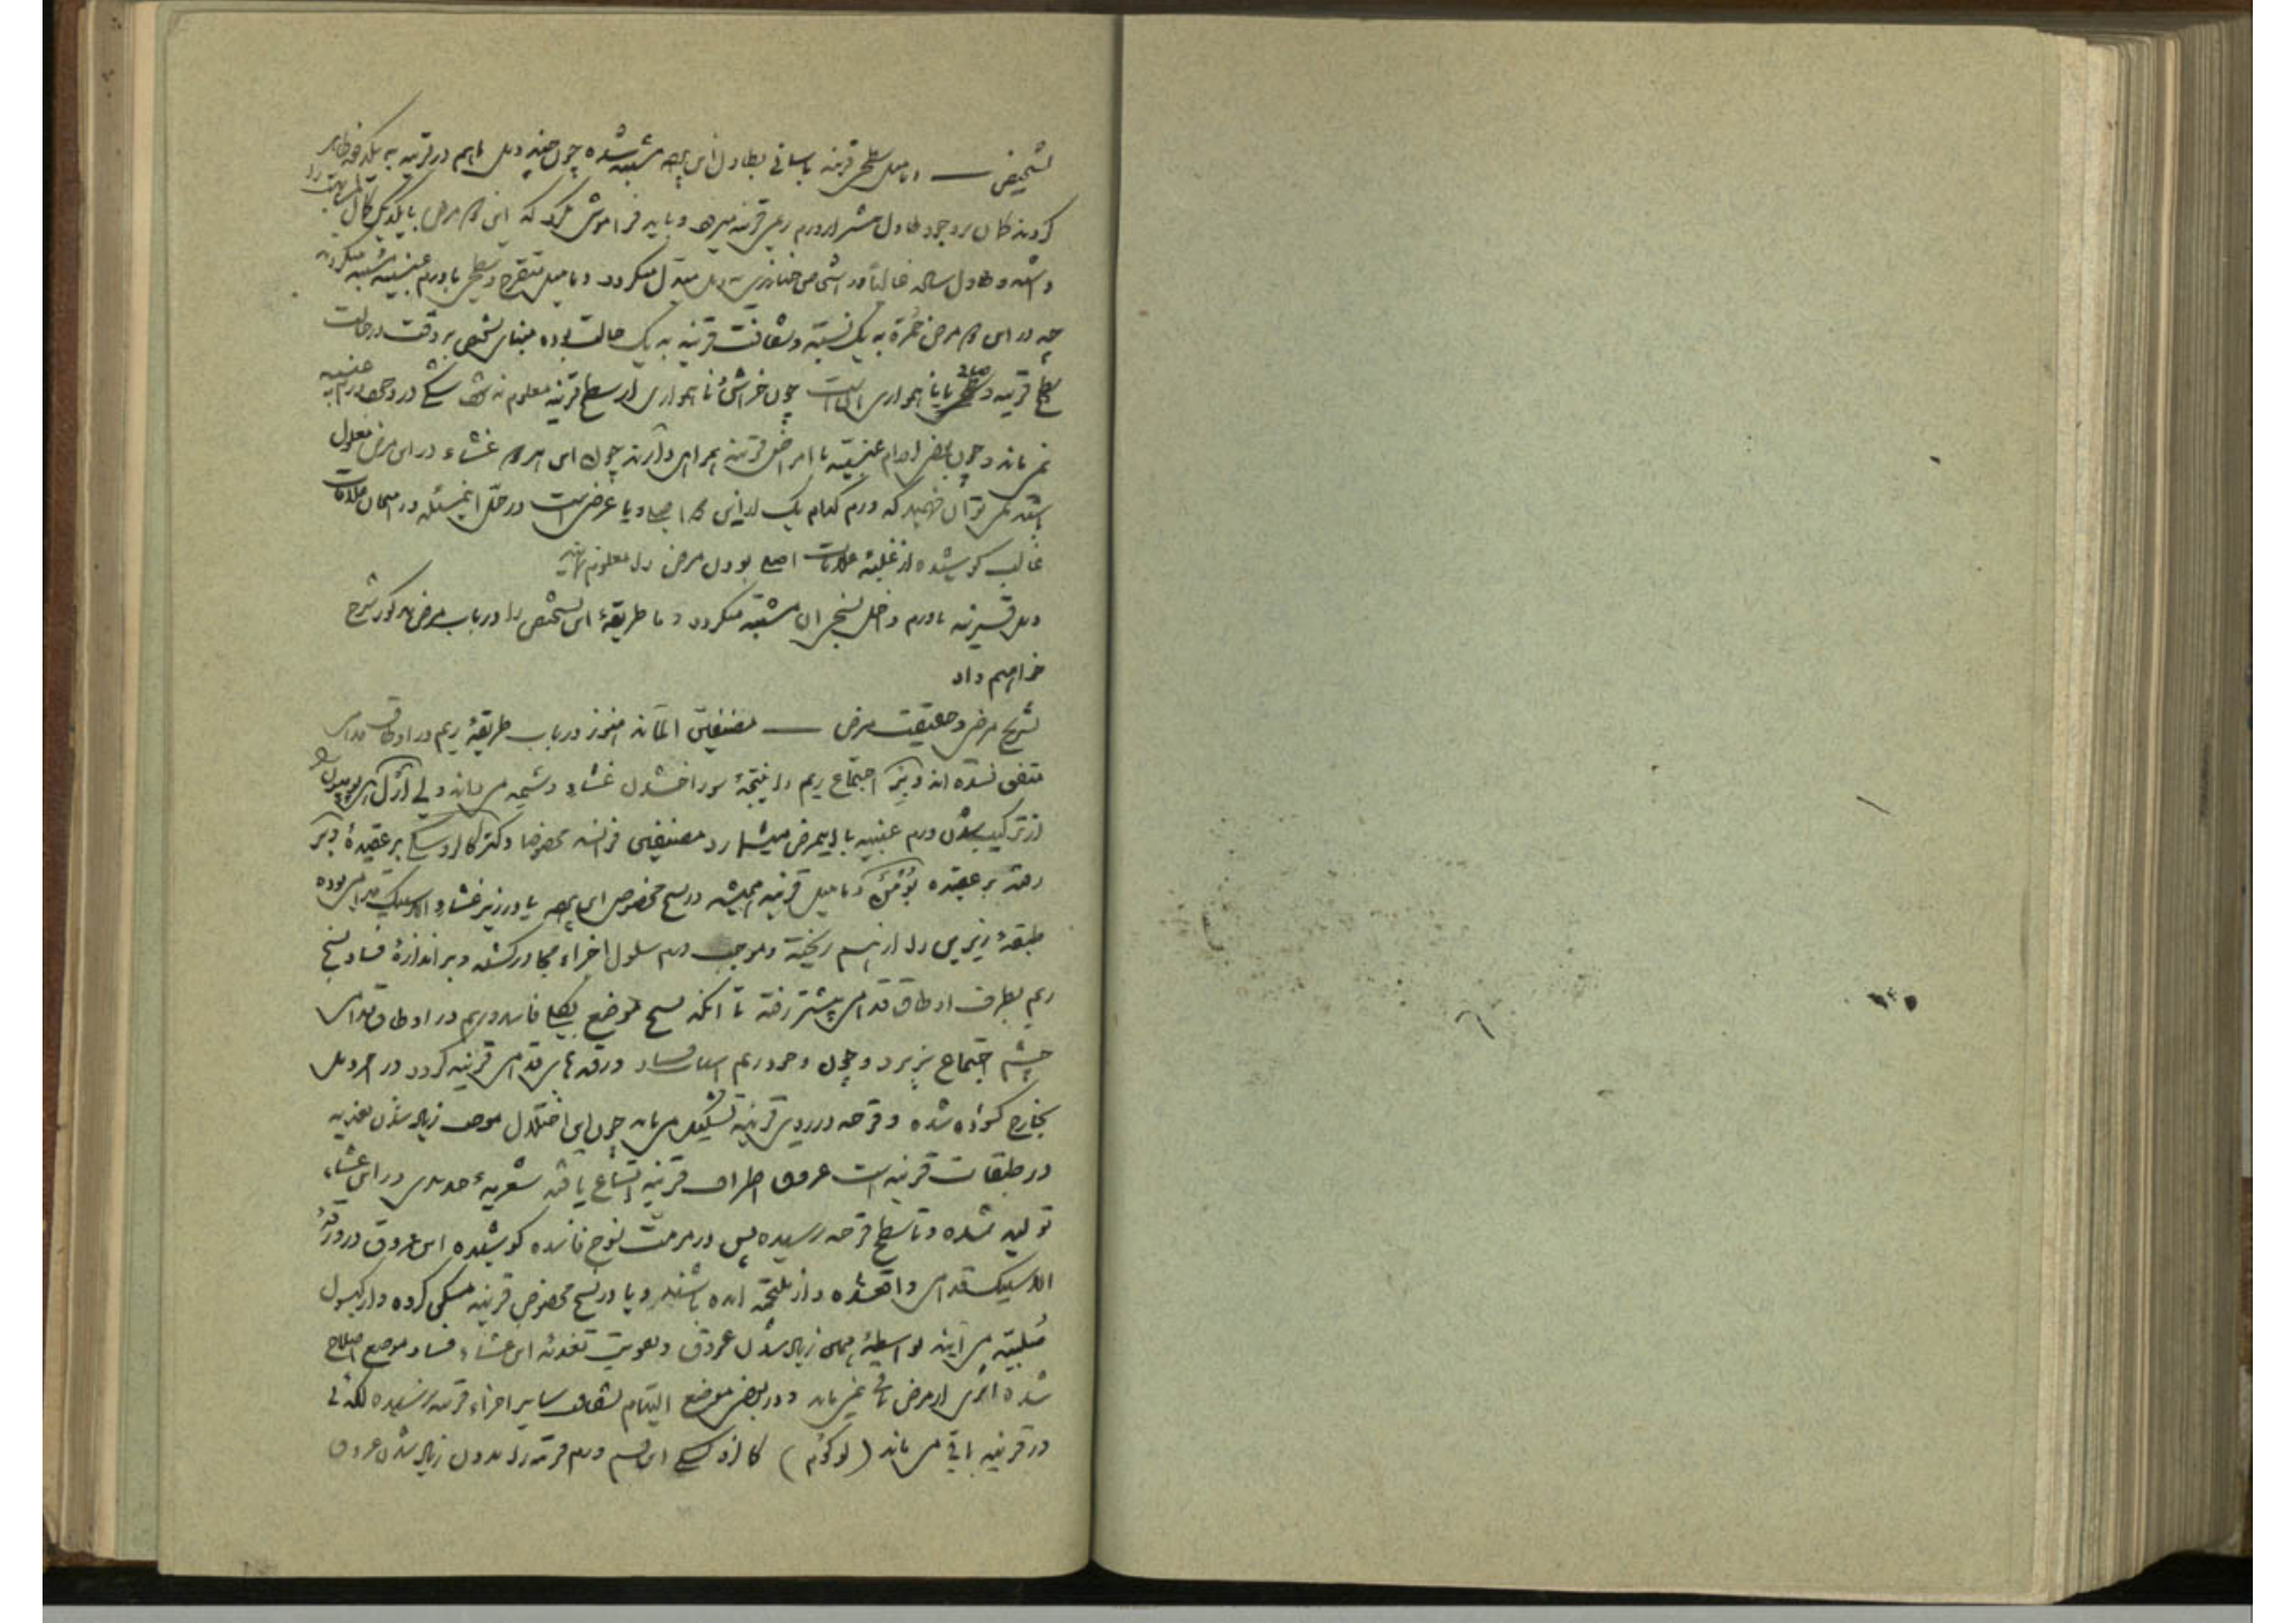 تشخیص — دمامیل سطحی قرنیه باسانی بطاول این پرده مشتبه شده چون چند دمل باهم در قرنیه به یکدفعه ظاهر
کردند کمان بر وجود طاول منتشر از ورم قرنیه میرود و باید فراموش نکرد که این دو مرض با یکدیگر کمال
داشته و طاول ساده غالباً در اشخاص خنازیری به دمل مبدل میگردد و دمامیل متقرح و سطحی با ورم عنبیه مشتبه میگردند
چه در این دو مرض حُمرة به یک نسبة و شفافیت قرنیه به یک حالت بوده مبنای تشخیص بر دقت در حالت
سطح قرنیه و ناهمواری آنست چون خراش و ناهمواری از سطح قرنیه معلوم نشد شکی در وجود ورم عنبیه
نمی ماند و چون بعضی اورام عنبیه با امراض قرنیه همراهی دارند چون این هر دو غشاء در این مرض معلول
باشند نمی توان فهمید که ورم کدام یک از این دو اصلی و یا عرضی است در حل اینمسئله در امتحان علامات
غالب کوشیده از غلبهٔ علامات اصلی بودن مرض را معلوم نمایند
دمل قرنیه با ورم داخل نسج آن مشتبه میگردد و ما طریقهٔ این تشخیص را در باب مرض مذکور شرح
خواهیم داد
تشریح مرض و حقیقت مرض — مصنفین المان هنوز در باب طریقهٔ ریم در اوطاق قدامی
متفق نشده اند و بَکِر اجتماع ریم را نتیجهٔ سوراخ شدن غشاء دشمه می داند ولی آرلت هیپوپیون را
از ترکیب شدن ورم عنبیه با اینمرض میشمارد مصنفین فرانسه مخصوصا دکتر کالزوسکی بر عقیدهٔ دیگر
رفته بر عقیده بُومَن دمامیل قرنیه همیشه در نسج مخصوص این پرده یا در زیر غشاء الاستیک قدامی بوده
طبقهٔ زیرین را از هم ریخته و موجب ورم سلول اجزاء مجاور گشته و بر اندازهٔ فساد نسج
ریم بطرف اوطاق قدامی پیشتر رفته تا آنکه نسج موضع بکلی فاسد و ریم در اوطاق قدامی
چشم اجتماع پذیرد و چون وجود ریم اسباب فساد ورقه های قدامی قرنیه گردد در آخر دمل
بخارج گشاده شده و قرحه در روی قرنیه تشکیل می یابد چون این اختلال موجب زیاد شدن تغذیه
در طبقات قرنیه است عروق اطراف قرنیه اتساع یافته شعریهٔ جدیدی در این غشاء
تولید شده و تا سطح قرحه رسیده پس در مرمت نسوج فاسده کوشیده این عروق در ورقهٔ
الاستیک قدامی واقعشده و از ملتحمه آمده باشند و یا در نسج مخصوص قرنیه مسکن کرده و از کپسول
صُلبیّه می آیند بواسطهٔ همین زیاد شدن عروق و تقویت تغذیهٔ این غشاء فساد موضع اصلاح
شده اثری از مرض باقی نمی ماند و در بعضی موضع التیام بشفافی سایر اجزاء قرنیه نرسیده لکه ئی
در قرنیه باقی می ماند (لوکوُم) کالزوسکی این قسم ورم قرنیه را بدون زیاد شدن عروق